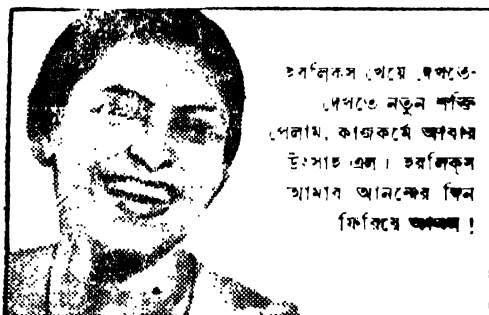 হরলিকস খেয়ে দেখতে-
দেখতে নতুন শক্তি
পেলাম, কাজকর্মে আবার
উৎসাহ এল। হরলিক্স
আমার আনন্দের দিন
ফিরিয়ে আনল!